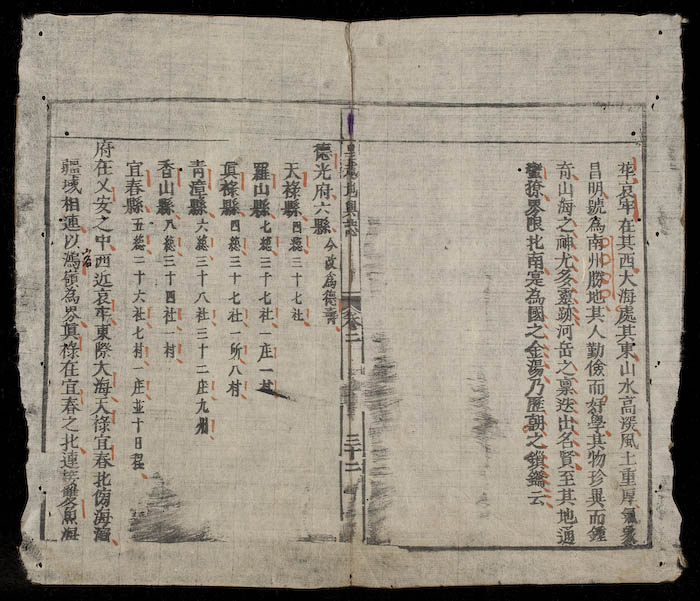 華哀牢在其西大海處其東山水高深風土重厚氣象
昌明號為南州勝地其人勤儉而好學其物珍異而鍾
奇山海之神尤多靈跡河岳之稟迭出名賢至其地通
蠻獠界限北南寔為國之金湯乃歷朝之鎖鑰云
皇越地輿誌 卷二 三十二
德光府六縣 今改為德壽
天祿縣 四總三十七社
羅山縣 七總三十七社一庄一村
真祿縣 四總三十七社一所八村
青漳縣 六總三十八社三十二庄九州
香山縣 八總三十四社一村
宜春縣 五總二十六社七村一庄並十日程
府在乂安之中西近哀牢東際大海天祿宜春北傍海濱
疆域相連以鴻嶺為界真祿在宜春之北連接雙魚海
右